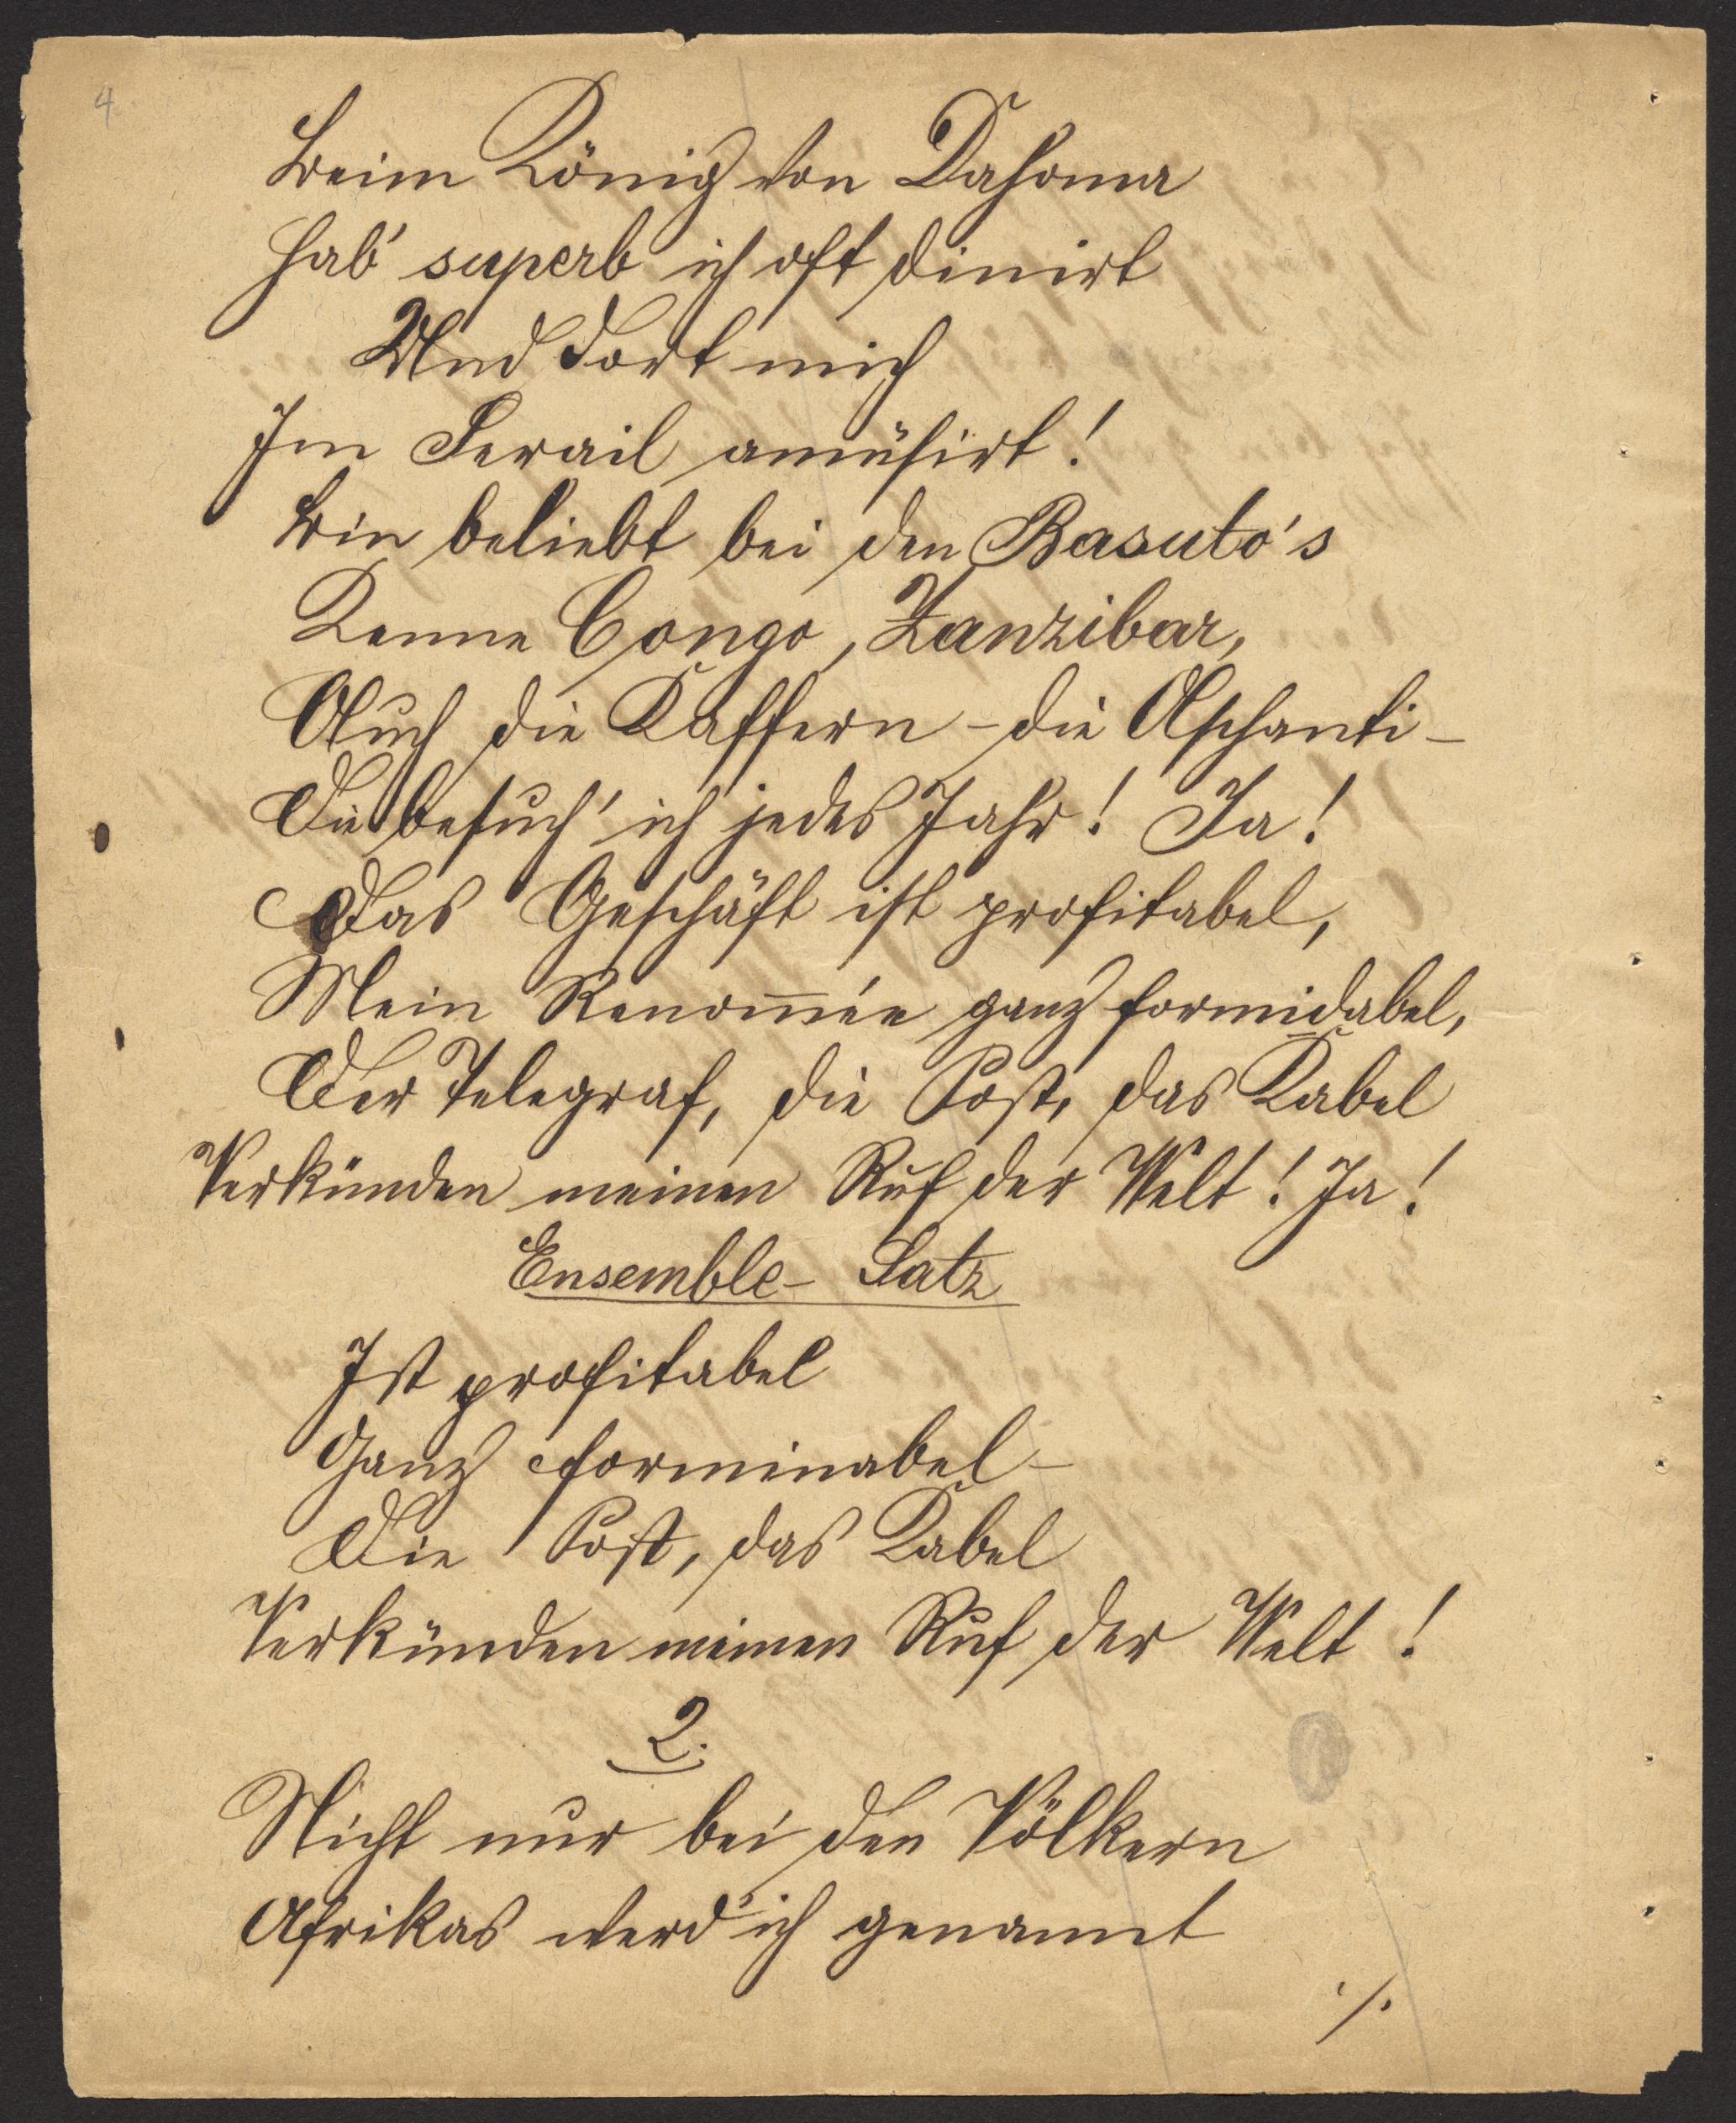 4
Beim König von Dahoma
Hab' superb ich oft dinirt
Und dort mich
Im Serail amüsirt!
Bin beliebt bei den Basuto's
Kenne Congo, Zanzibar,
Auch die Kaffern - die Aschanti -
Die besuch' ich jedes Jahr! Ja!
Das Geschäft ist profitabel,
Mein Renom̅ée ganz formidabel,
Der Telegraf, die Post, das Kabel
Verkünden meinen Ruf der Welt! Ja!
Ensemble - Satz
Ist profitabel
Ganz forminabel -
Die Post, das Kabel
Verkünden meinen Ruf der Welt!
2.
Nicht nur bei den Völkern
Afrikas werd' ich genannt
./.